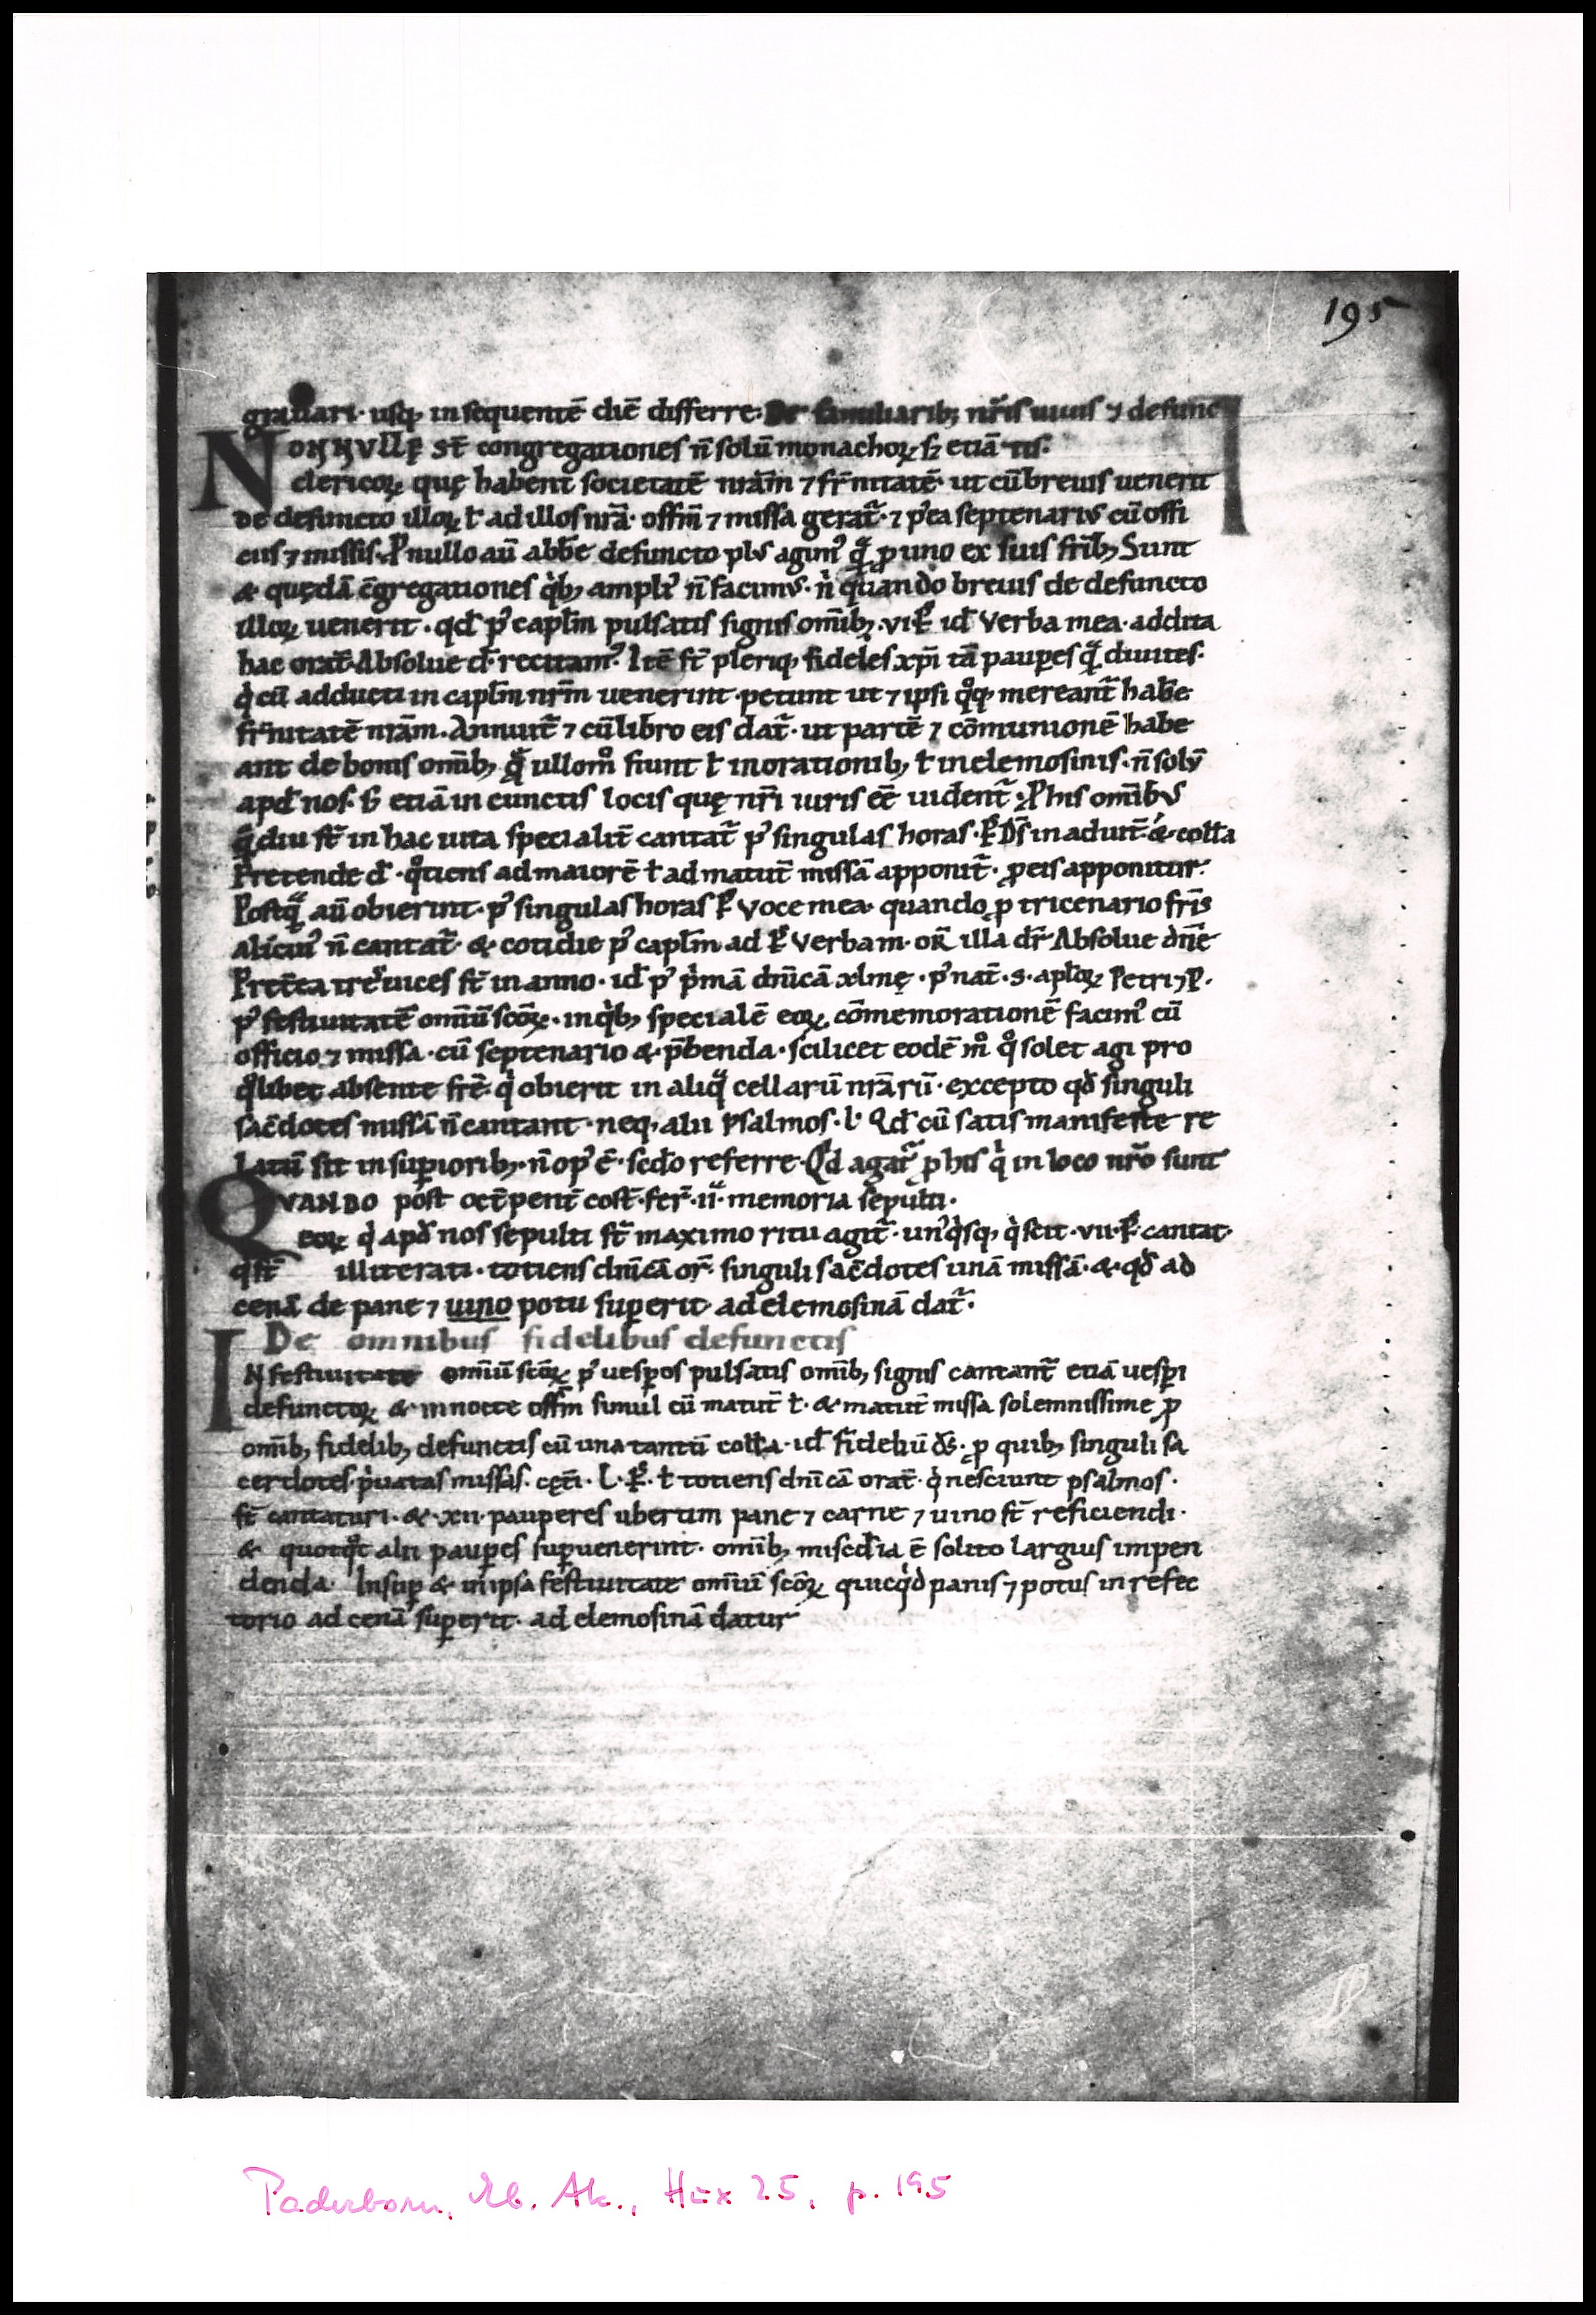 195
grauari· usq, in sequentē diē differre· De familiarib; nr̄is uiuis ⁊ defunc
NONNVLLĘ ST̄ congregationes n̄ solū monachoꝝ sꝫ etiā tis·
clericoꝝ quę habent societatē nr̄am ⁊ fr̄nitatē· ut cū breuis uenerit
De defuncto illoꝝ ł ad illos nrā· offm̄ ⁊ missa gerat᷑· ⁊ p͛ea septenariꝰ cū offi
ciis ⁊ missis· P nullo aū abbe defuncto plꝰ agimꝰ quā ꝓ uno ex suis frīb; Sunt
& quędā c̄gregationes qͥb; ampliꝰ n̄ facimꝰ· nͥ quando breuis de defuncto
illoꝝ uenerit· qd̄ pꝰ caplm̄ pulsatis signis om̄ib;· vi p̄s id̄ Verba mea· addita
hac orat̄· Absolue d̄· recitamꝰ. Itē st̄ pleriq, fideles xp̄i tā pauꝑes quā diuites·
qͥ cū adducti in caplm̄ nrm̄ uenerint· petunt ut ⁊ ipsi q̊q, mereant᷑ habe
fr̄nitatē nrām. Annuit᷑ ⁊ cū libro eis dat᷑· ut partē ⁊ cōmunionē habe
ant de bonis om̄ib; quę ullom̊ fiunt ł in orationib; ł in elemosinis· n̄ solū
apd̄ nos· sꝫ etiā in cunctis locis quę nr̄i iuris eē uident᷑· P his om̄ibꝰ
quādiu st̄ in hac uita specialit̄ cantat᷑ pꝰ singulas horas· p̄s Ds̄ in adiut̄· & coll̄a
Pretende d̄· q̊tiens ad maiorē ł ad matut̄ missā apponit᷑· ꝓ eis apponitur·
Postquā aū obierint· pꝰ singulas horas p̄s Voce mea· quando ꝓ tricenario fr̄is
alicuiꝰ n̄ cantat᷑· & cotidie pꝰ caplm̄ ad p̄s Verba m· or̄ illa dr̄ Absolue dn̄e
Pret̄ea tres uices st̄ in anno· id̄ pꝰ p͛mā dn̄icā xlmę· pꝰ nat̄· s· apl̄oꝝ Petri ⁊ P·
pꝰ festiuitatē om̄iū scōꝝ· in qͥb; specialē eoꝝ cōmemorationē facimꝰ cū
officio ⁊ missa· cū septenario & p̄benda· scilicet eodē m̊ q̊ solet agi pro
q̊libet absente frē· qͥ obierit in aliqua cellarū nrārū· excepto qd̄ singuli
sac̄dotes missā n̄ cantant· neq, alii psalmos· l· Qd̄ cū satis manifeste re
latū sit in suꝑiorib;· n̄ opꝰ ē· scd̄o referre· Qd̄ agat᷑ ꝓ his qͥ in loco nr̄o sunt
QVANDO post oct̄ pent̄ cost̄· fer̄· ii· memoria sepulti·
eoꝝ qͥ apd̄ nos sepulti st̄ maximo ritu agit᷑· unꝰqͥsq, qͥ scit· vii· p̄s cantat·
qst̄ illiterati· totiens dn̄icā or̄· singuli sac̄dotes unā missā· & qd̄ ad
cenā de pane ⁊ uino potu suꝑerit· ad elemosinā dat᷑·
De omnibus fidelibus defunctis
IN festiuitate om̄iū scōꝝ pꝰ uesꝑos pulsatis om̄ib; signis cantant᷑ etiā uesꝑi
defunctoꝝ & in nocte offm̄ simul cū matut̄ ł· & matut̄ missa solemnissime ꝓ
om̄ib; fidelib; defunctis cū una tantū coll̄a· id̄ fidelium ds̄· ꝓ quib; singuli sa
cerdotes p͛uatas missas· cęt̄i· L· p̄s· ł totiens dn̄icā orat̄· qͥ nesciunt psalmos·
st̄ cantaturi· & xii· pauperes ubertim pane ⁊ carne ⁊ uino st̄ reficiendi·
& quotq̊t alii pauꝑes suꝑuenerint· om̄ib; misc̄dia ē solito largius impen
denda· Insuꝑ & in ipsa festiuitate om̄iū scōꝝ quicqͥd panis ⁊ potus in refec
torio ad cenā suꝑerit· ad elemosinā datur
Paderborn, Eb. Ak., Hux 25, p. 195